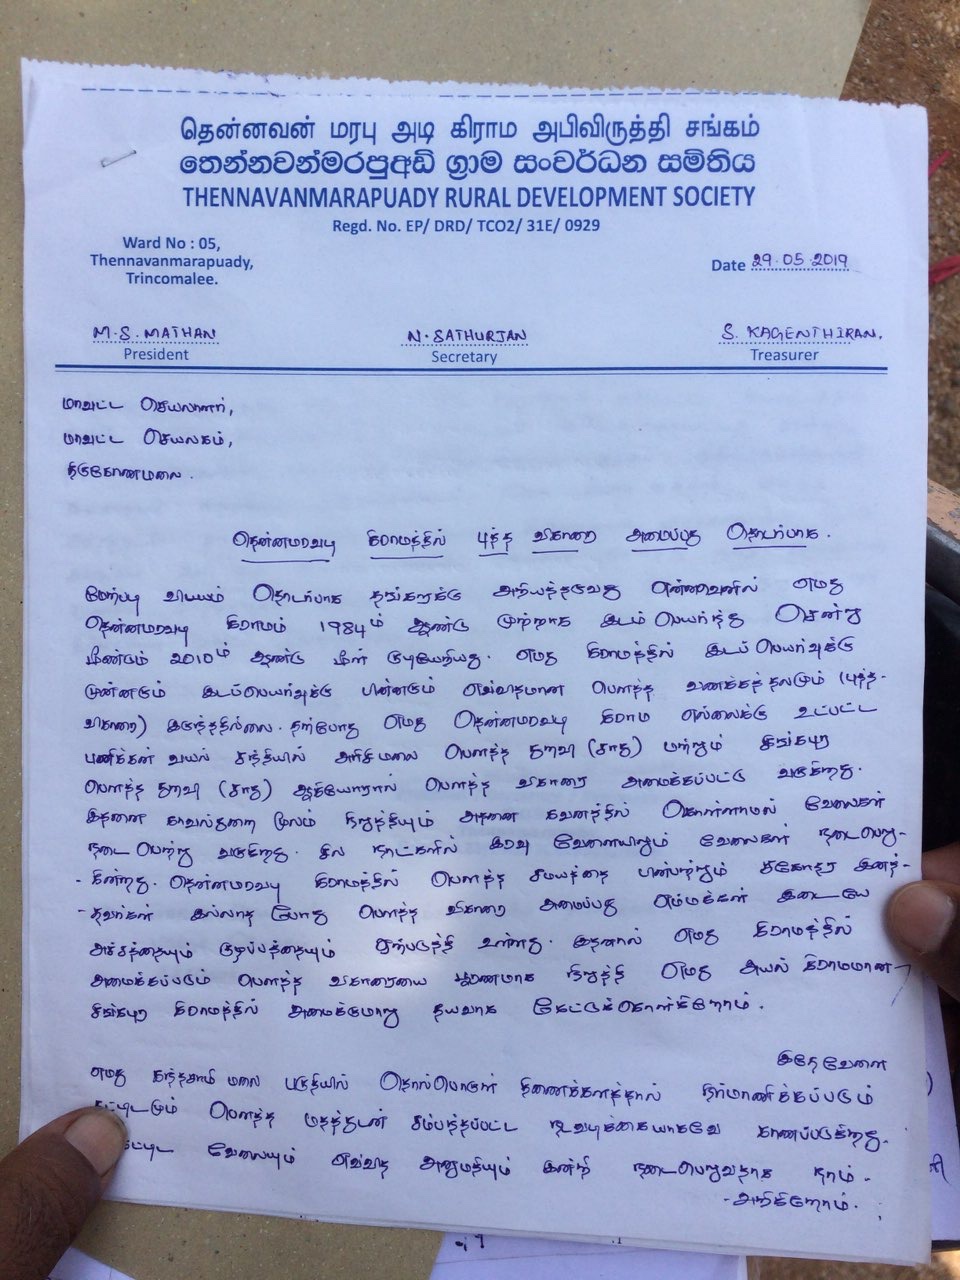 தென்னவன் மரபு அடி கிராம அபிவிருத்தி சங்கம்
තෙන්නවන්මරපුඅඩි ග්‍රාම සංවර්ධන සමිතිය
THENNAVANMARAPUADY RURAL DEVELOPMENT SOCIETY
Regd. No. EP/ DRD/ TCO2/ 31E/ 0929
Ward No : 05,
Thennavanmarapuady,
Trincomalee.
Date 29.05.2019
M.S. MATHAN
President
N. SATHURJAN
Secretary
S. KAGENTHIRAN.
Treasurer
மாவட்ட செயலாளர்,
மாவட்ட செயலகம்,
திருகோணமலை.
தென்னமரவடி கிராமத்தில் புத்த விகாரை அமைப்பது தொடர்பாக.
மேற்படி விடயம் தொடர்பாக தங்களுக்கு அறியத்தருவது என்னவெனில் எமது
தென்னமரவடி கிராமம் 1984ம் ஆண்டு முற்றாக இடம் பெயர்ந்து சென்று
மீண்டும் 2010ம் ஆண்டு மீள் குடியேறியது. எமது கிராமத்தில் இடப் பெயர்வுக்கு
முன்னரும் இடப்பெயர்வுக்கு பின்னரும் எவ்விதமான பௌத்த வணக்கத்தலமும் (புத்த-
விகாரை) இருந்ததில்லை. தற்போது எமது தென்னமரவடி கிராம எல்லைக்கு உட்பட்ட
பணிக்கன் வயல் சந்தியில் அரிசிமலை பௌத்த துறவி (சாது) மற்றும் சிங்கபுர
பௌத்த துறவி (சாது) ஆகியோரால் பௌத்த விகாரை அமைக்கப்பட்டு வருகிறது.
இதனை காவல்துறை மூலம் நிறுத்தியும் அதனை கவனத்தில் கொள்ளாமல் வேலைகள்
நடை பெற்று வருகிறது. சில நாட்களில் இரவு வேளையிலும் வேலைகள் நடைபெறு-
-கின்றது. தென்னமரவடி கிராமத்தில் பௌத்த சமயத்தை பின்பற்றும் சகோதர இனத்-
-தவர்கள் இல்லாத போது பௌத்த விகாரை அமைப்பது எம்மக்கள் இடையே
அச்சத்தையும் குழப்பத்தையும் ஏற்படுத்தி உள்ளது. இதனால் எமது கிராமத்தில்
அமைக்கப்படும் பௌத்த விகாரையை பூரணமாக நிறுத்தி எமது அயல் கிராமமான
சிங்கபுர கிராமத்தில் அமைக்குமாறு தயவாக கேட்டுக்கொள்கிறோம்.
இதேவேளை
எமது கந்தசாமி மலை பகுதியில் தொல்பொருள் திணைக்களத்தால் நிர்மாணிக்கப்படும்
பௌத்த மதத்துடன் சம்பந்தப்பட்ட நடவடிக்கையாகவே காணப்படுகிறது.
வேலையும் எவ்வித அனுமதியும் இன்றி நடைபெறுவதாக நாம்
-அறிகிறோம்.